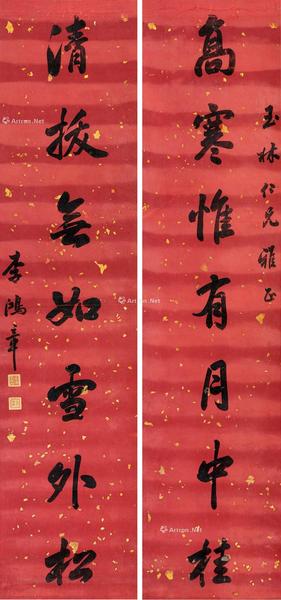 玉林仁兄雅正
高寒惟有月中桂
清拔无如雪外松
李鴻章
Artron.Net
Artron.Net
Artron.Net
Artron.Net